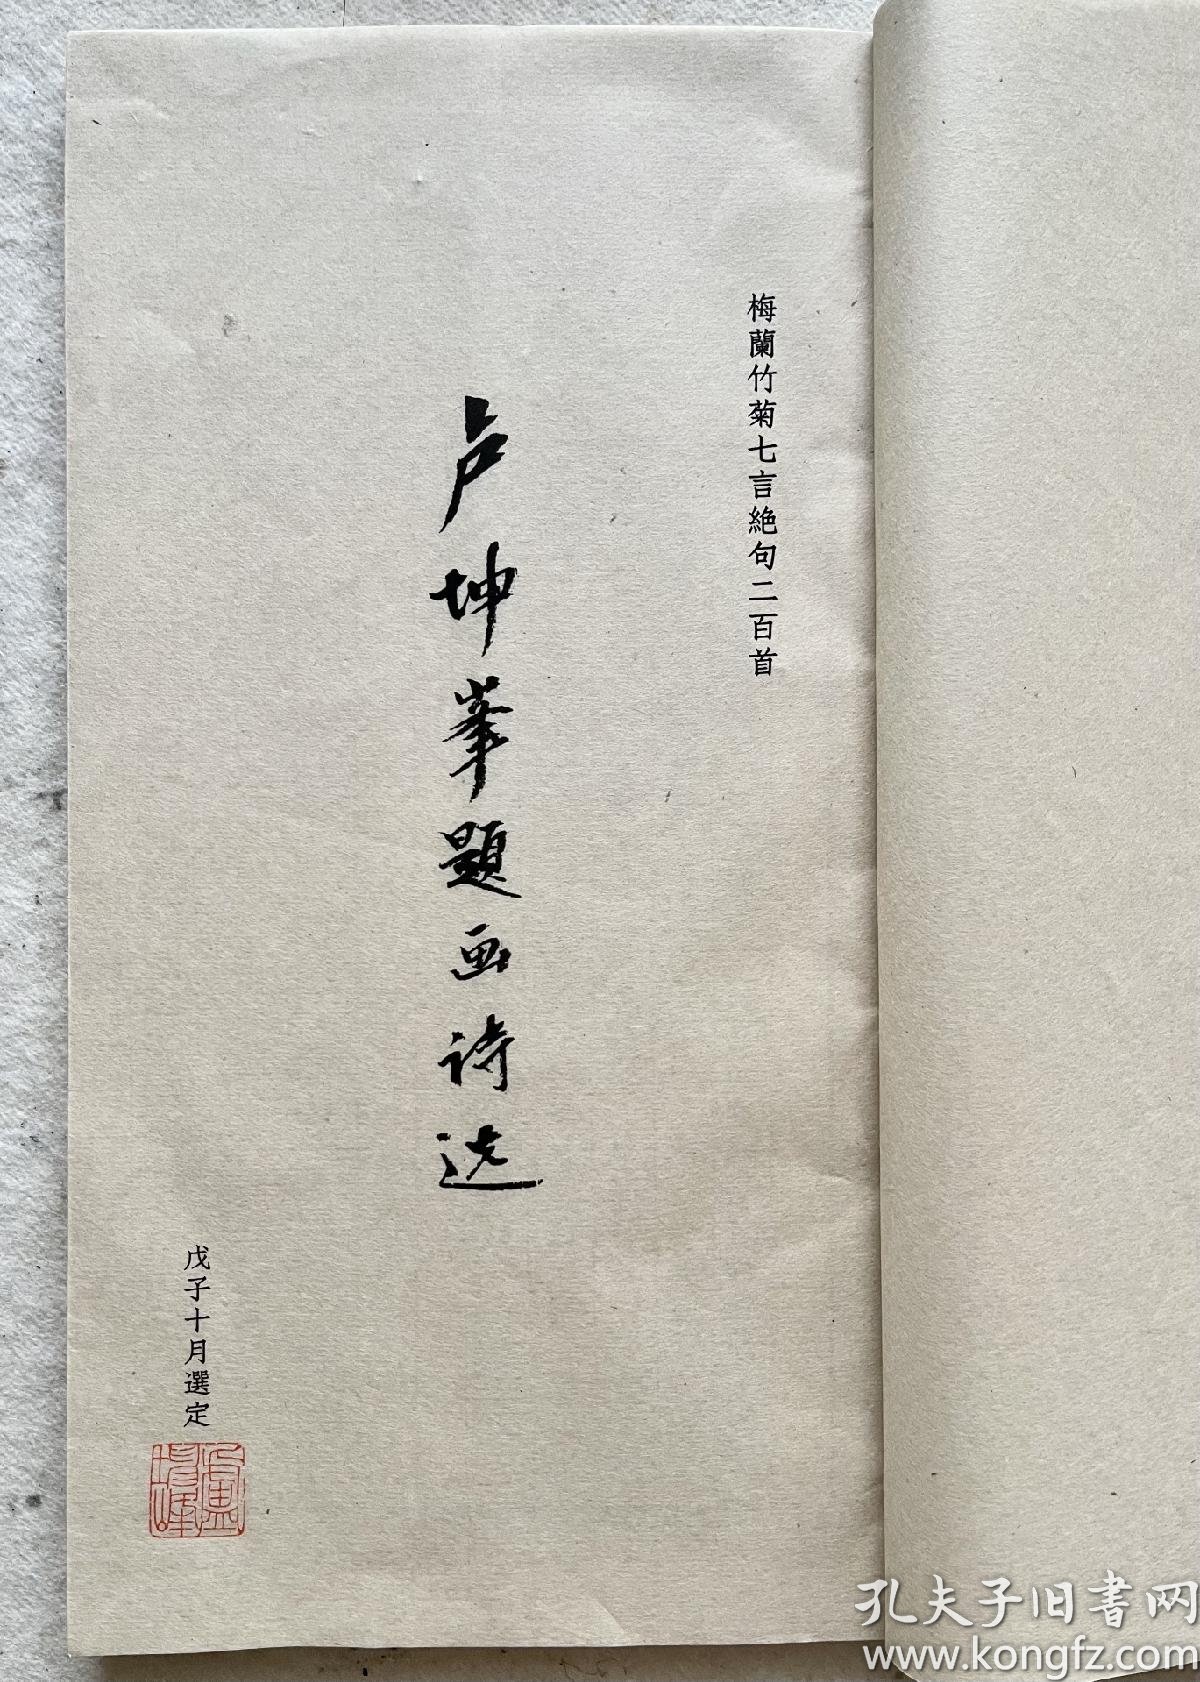 梅蘭竹菊七言絶句二百首
卢坤峯題画诗选
戊子十月選定
盧坤峰
孔夫子旧書网
www.kongfz.com